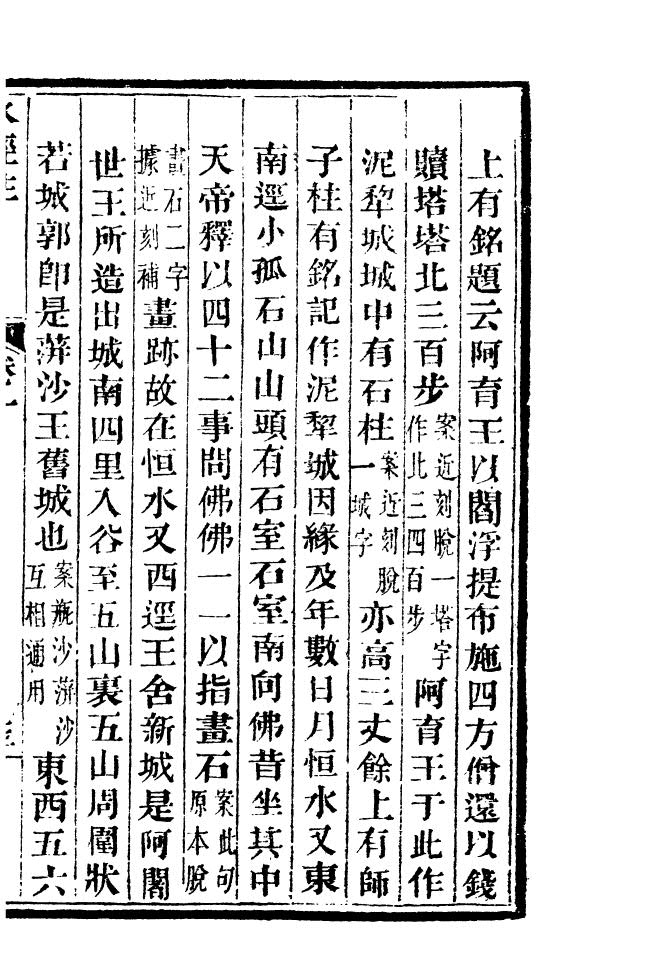 上有銘題云阿育王以閻浮提布施四方僧還以錢
贖塔塔北三百步案近刻脫一塔字作北三四百步阿育王于此作
泥犂城城中有石柱案近刻脫一城字亦高三丈餘上有師
子柱有銘記作泥犂城因緣及年數日月恒水又東
南逕小孤石山山頭有石室石室南向佛昔坐其中
天帝釋以四十二事問佛佛一一以指畫石案此句原本脫
畫石二字據近刻補畫跡故在恒水又西逕王舍新城是阿闍
世王所造出城南四里入谷至五山裏五山周圍狀
若城郭卽是蓱沙王舊城也案瓶沙蓱沙互相通用東西五六
水經注 卷一